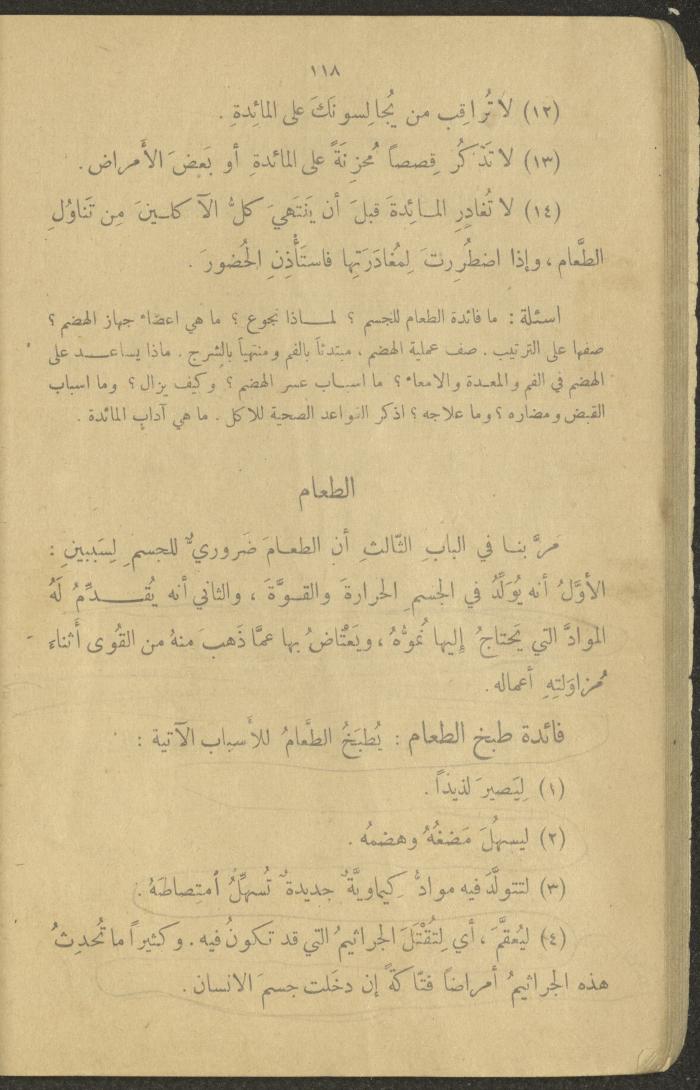 ١١٨
(١٢) لا تُراقِب من يُجالِسونَكَ على المائِدةِ .
(١٣) لا تَذكُر قِصصاً مُحزِنَةً على المائدةِ أو بَعضَ الأَمراض .
(١٤) لا تُغادِرِ المائِدةَ قبلَ أن يَنتَهيَ كلُّ الآكلينَ مِن تَناوُلِ
الطَّعام ، وإذا اضطُرِرتَ لِمُغادَرَتِها فاستَأْذِنِ الحُضورَ .
اسئلة : ما فائدة الطعام للجسم ؟ لماذا نجوع ؟ ما هي اعضاء جهاز الهضم ؟
صفها على الترتيب . صف عملية الهضم ، مبتدئاً بالفم ومنتهياً بالشرج . ماذا يساعد على
الهضم في الفم والمعدة والامعاء ؟ ما اسباب عسر الهضم ؟ وكيف يزال ؟ وما اسباب
القبض ومضاره ؟ وما علاجه ؟ اذكر القواعد الصحية للاكل . ما هي آداب المائدة .
الطعام
مرَّ بنا في البابِ الثّالثِ أن الطعامَ ضَروريٌّ للجسمِ لِسَببينِ :
الأوَّلُ أنه يُوَلِّدُ في الجسمِ الحرارةَ والقوَّةَ ، والثاني أنه يُقدِّمُ لَهُ
الموادَّ التي يَحتاجُ إليها نُموُّهُ ، ويَعْتاضُ بها عمَّا ذَهبَ منهُ من القُوى أَثناء
مُزاوَلتِهِ أعماله .
فائدة طبخ الطعام : يُطبَخُ الطَّعامُ للأسباب الآتية :
(١) لِيَصيرَ لذيذاً .
(٢) ليسهُلَ مَضغُهُ وهضمُه .
(٣) لتتولَّدَ فيه موادُّ كِيماويَّةٌ جديدةٌ تُسهِّلُ اُمتِصاصَهُ .
(٤) ليُعقَّمَ ، أي لِتُقْتَلَ الجراثيمُ التي قد تكونُ فيه . وكثيراً ما تُحدِثُ
هذه الجراثيمُ أمراضاً فتّاكةً إن دخَلت جسمَ الانسان .